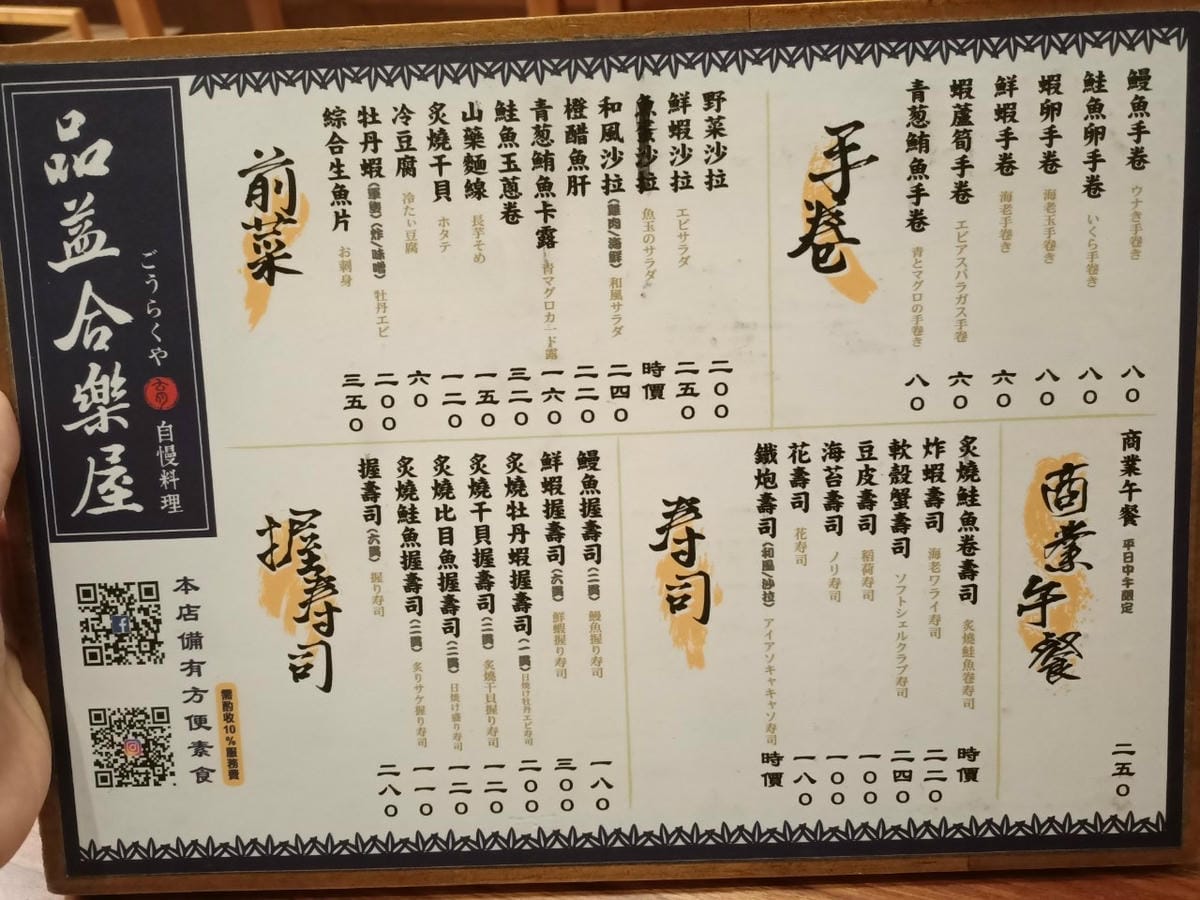 品益合樂屋
ごうらくや
自慢料理
手卷
鰻魚手卷 ウナき手卷き 八〇
鮭魚卵手卷 いくら手卷き 八〇
蝦卵手卷 海老玉手卷き 八〇
鮮蝦手卷 海老手卷き 六〇
蝦蘆筍手卷 エビアスパラガス手卷 六〇
青葱鮪魚手卷 青とマグロの手卷き 八〇
前菜
野菜沙拉 二〇〇
鮮蝦沙拉 エビサラダ 二五〇
沙拉 魚玉のサラダ 時價
和風沙拉(雞肉/海鮮) 和風サラダ 二四〇
橙醋魚肝 二二〇
青葱鮪魚卡露 青マグロカード露 一六〇
鮭魚玉蔥卷 三二〇
山藥麵線 長芋そめ 一五〇
炙燒干貝 ホタテ 一二〇
冷豆腐 冷たい豆腐 六〇
牡丹蝦(炸/味噌) 牡丹エビ 二〇〇
綜合生魚片 お刺身 三五〇
商業午餐
商業午餐 平日中午限定 二五〇
寿司
炙燒鮭魚卷壽司 炙燒鮭魚卷寿司 時價
炸蝦壽司 海老ワライ寿司 二二〇
軟殼蟹壽司 ソフトシェルクラブ寿司 二四〇
豆皮壽司 稻荷寿司 一〇〇
海苔壽司 ノリ寿司 一〇〇
花壽司 花寿司 一八〇
鐵炮壽司(和風/沙拉) アイアソキャキャソ寿司 時價
握寿司
鰻魚握壽司(二貫) 鰻魚握り寿司 一八〇
鮮蝦握壽司(六貫) 鮮蝦握り寿司 三〇〇
炙燒牡丹蝦握壽司(一貫) 日燒け牡丹エビ寿司 二〇〇
炙燒干貝握壽司(二貫) 炙燒干貝握り寿司 一二〇
炙燒比目魚握壽司(二貫) 日燒け盛り寿司 一二〇
炙燒鮭魚握壽司(二貫) 炙りサケ握り寿司 一一〇
握壽司(六貫) 握り寿司 二八〇
本店備有方便素食
需酌收10%服務費